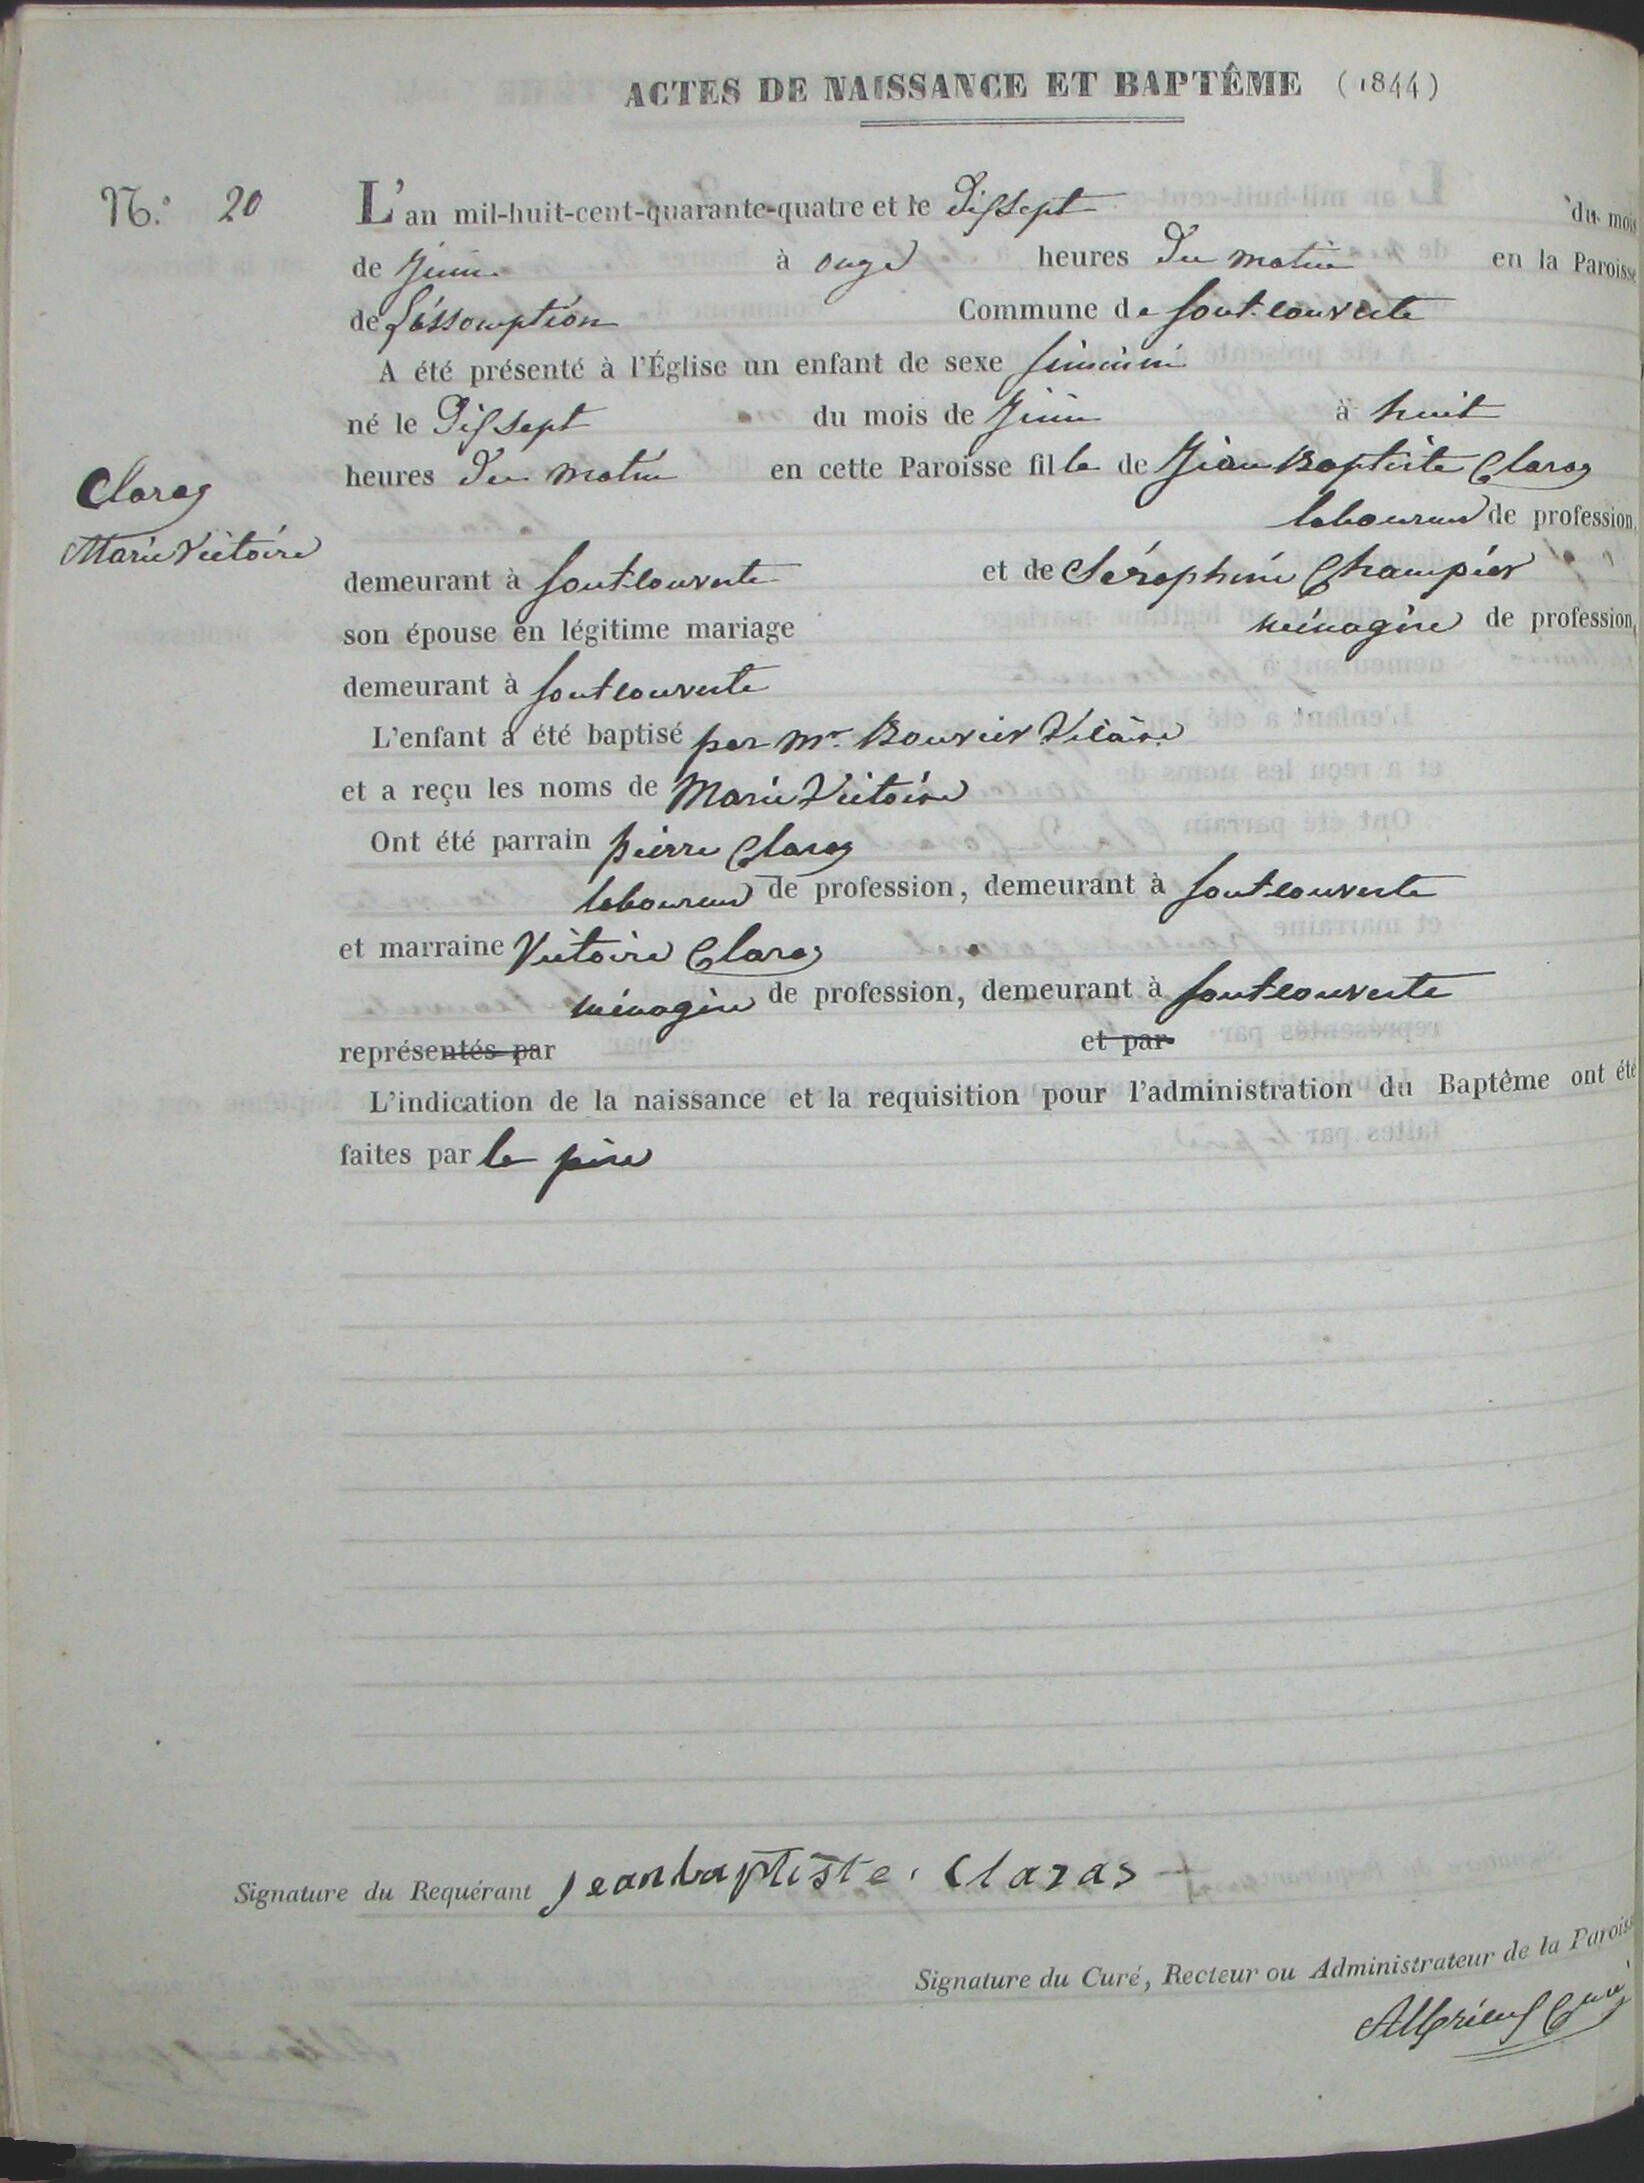 ACTES DE NAISSANCE ET BAPTÊME (1844)
N.° 20
L'an mil-huit-cent-quarante-quatre et le Dixsept du mois
de Juin à onze heures Du matin en la Paroisse
de L'assomption Commune de Fontcouverte
A été présenté à l'Église un enfant de sexe féminin
né le Dixsept du mois de Juin à huit
heures Du matin en cette Paroisse fille de Jean Baptiste Claraz
laboureur de profession,
Claraz
Marie Victoire
demeurant à Fontcouverte et de Séraphine Champier
son épouse en légitime mariage ménagère de profession,
demeurant à Fontcouverte
L'enfant a été baptisé par Mr. Bouvier Vicaire
et a reçu les noms de Marie Victoire
Ont été parrain pierre Claraz
laboureur de profession, demeurant à Fontcouverte
et marraine Victoire Claraz
ménagère de profession, demeurant à Fontcouverte
représentés par et par
L'indication de la naissance et la requisition pour l'administration du Baptême ont été
faites par le père
Signature du Requérant jeanbaptiste. Claras
Signature du Curé, Recteur ou Administrateur de la Paroiss
Curé